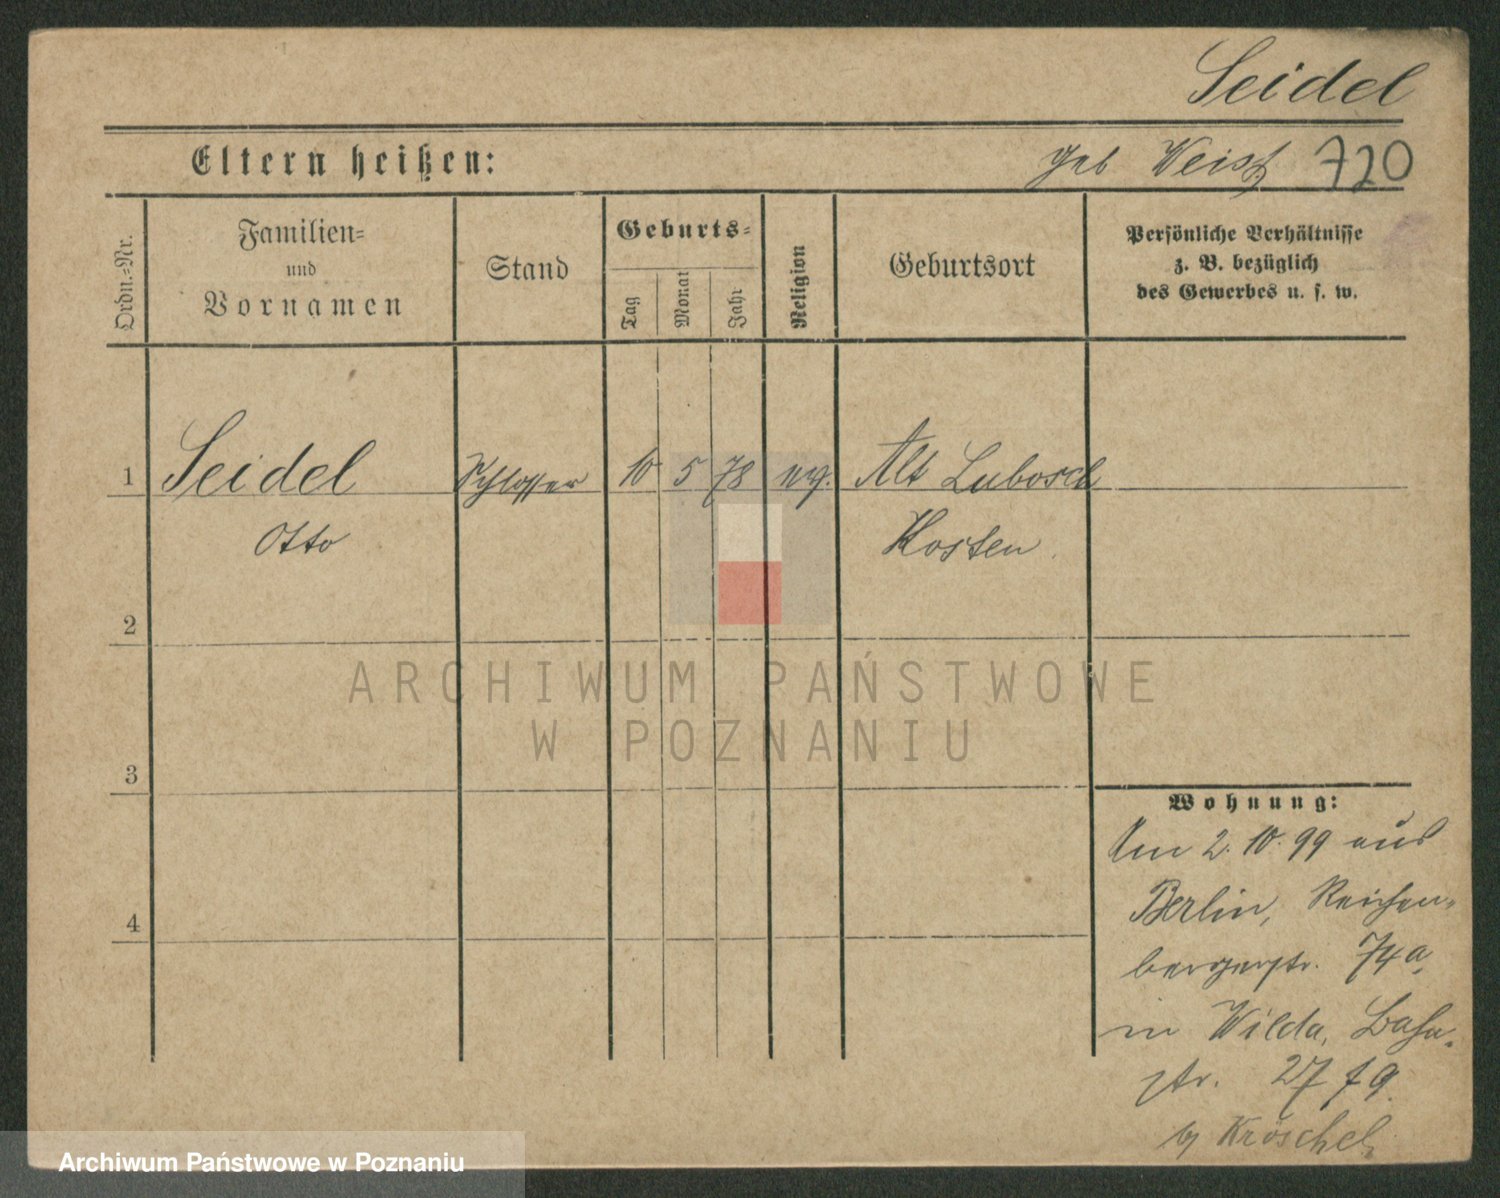 Seidel
Eltern heißen:
geb Weist 720
Ordn.=Nr.
Familien=
und
Vornamen
Stand
Geburts=
Tag
Monat
Jahr
Religion
Geburtsort
Persönliche Verhältnisse
z. B. bezüglich
des Gewerbes u. s. w.
1 Seidel Schlosser 10 5 78 evg. Alt Lubosch
Otto Kosten
2
ARCHIWUM PAŃSTWOWE
W POZNANIU
3
Wohnung:
Am 2. 10. 99 aus
Berlin, Reichen=
bergerstr. 74a
4
in Wilda, Bahn=
str. 27
Kröschel
Archiwum Państwowe w Poznaniu